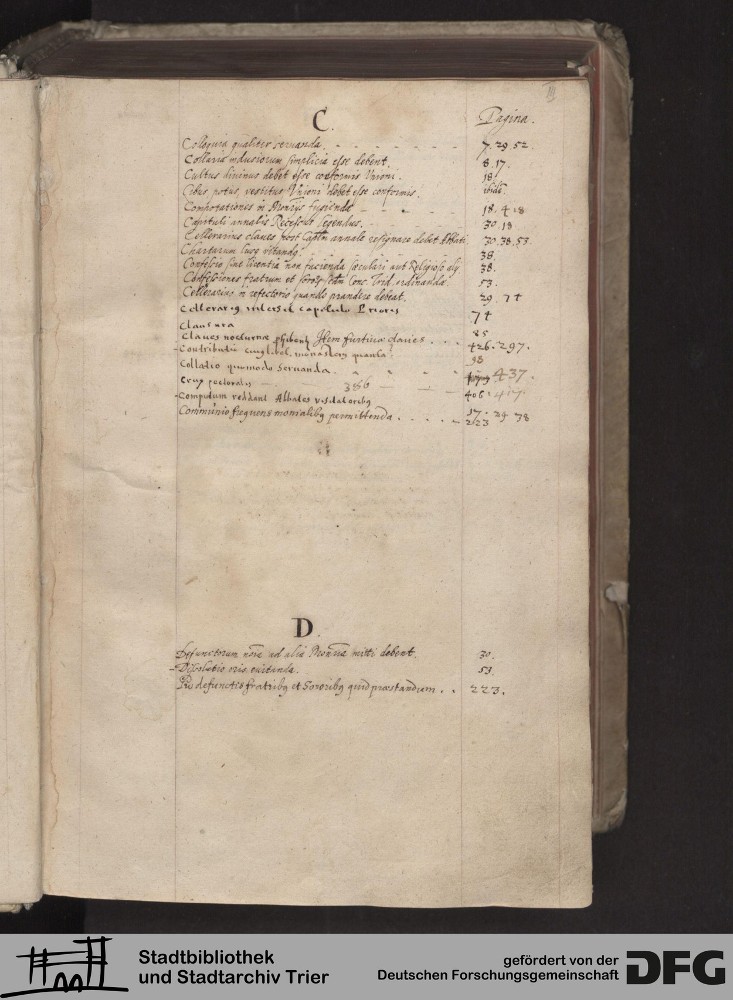 III
C.
Pagina.
Colloquia qualiter servanda. 7. 29. 52.
Collaris indusiorum simplicia esse debent. 8. 17.
Cultus divinus debet esse conformis Unioni. 18
Cibus, potus, vestitus Unioni debet esse conformis. ibid.
Compotationes in Mon̄rijs fugiendae 18. 4 18
Capituli annalis Recessus legendus. 30. 18
Cellerarius claves post Cap̄tm annale resignare debet Abbati 30. 38. 53.
Chartarum lusus vitando. 38.
Confessio sine licentia non facienda saeculari aut Religioso 38.
Confessiones fratrum et soror Conc. Trid. ordinanda. 53.
Cellerarius in refectorio quando prandere debeat. 29. 74
Cellerarius intersit capitulo Priores 74
Clausura
Claves nocturnae phibent Item furtivae claves . . . 85
Contributio monaster̄ quanta? 426. 297.
Collatio quomodo servanda. 38
Crux pectoralis 386 437.
Computum reddant Abbates visitatoribus 406. 417.
Communio frequens monialibus permittenda . . . . 17. 29 78
223
D.
Defunctorum noīa ad alia Mon̄ria mitti debent. 30.
Dissolutio oris evitanda. 53.
Pro defunctis fratribus et Sororibus quid praestandum . . 223.
Stadtbibliothek
und Stadtarchiv Trier
gefördert von der
Deutschen Forschungsgemeinschaft
DFG